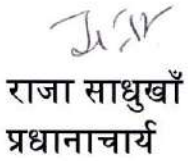 राजा साधुखाँ
प्रधानाचार्य